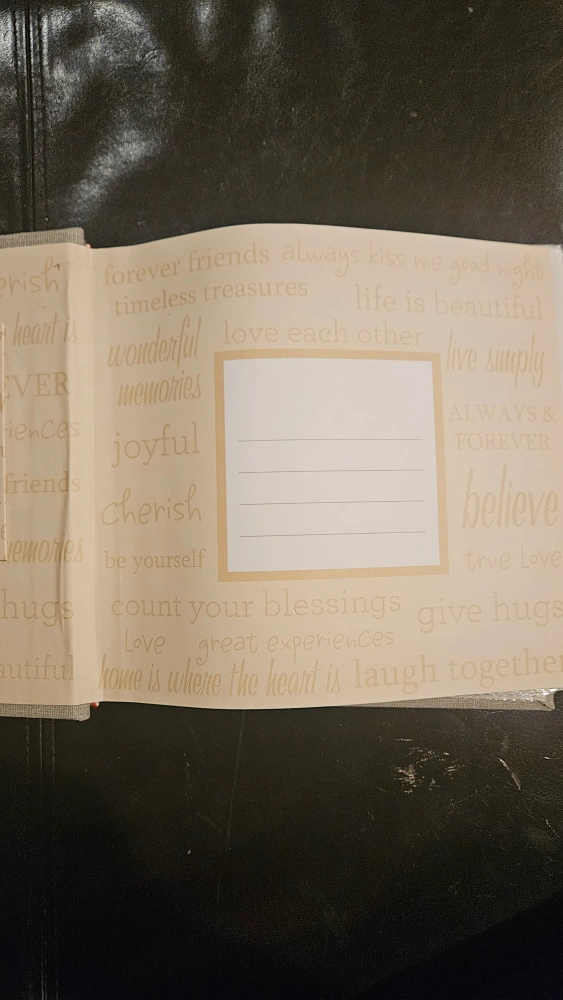 erish
heart is
EVER
riences
friends
memories
hugs
autiful
forever friends always kiss me good night
timeless treasures life is beautiful
love each other
wonderful
memories
live simply
ALWAYS &
FOREVER
joyful
Cherish
believe
be yourself
true Love
count your blessings give hugs
Love great experiences
home is where the heart is laugh together